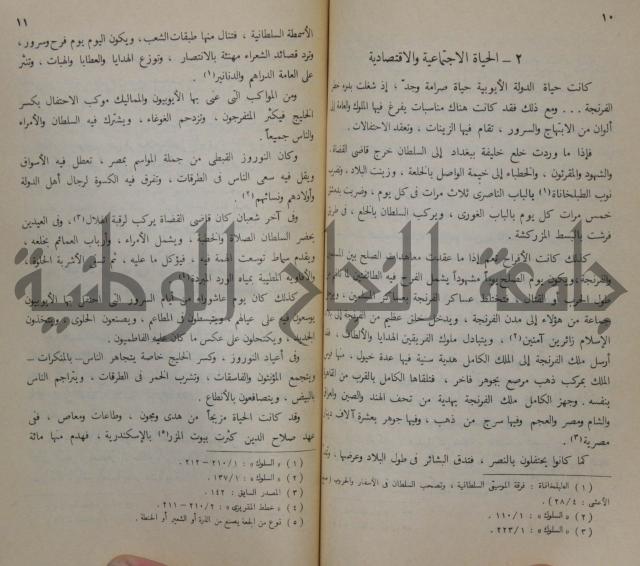 ١٠
٢ – الحياة الاجتماعية والاقتصادية
كانت حياة الدولة الأيوبية حياة صرامة وجد ؛ إذ شغلت بدره خطر
الفرنجة ... ومع ذلك فقد كانت هناك مناسبات يفرغ فيها الملوك والعامة إلى
ألوان من الابتهاج والسرور ، تقام فيها الزينات ، وتعقد الاحتفالات .
فإذا ما وردت خلع خليفة بغداد إلى السلطان خرج قاضى القضاة
والشهود والمقرئون ، والخطباء إلى خيمة الواصل بالخلعة ، وزينت البلاد ، وتضرب
نوب الطبلخاناة (١) بالباب الناصرى ثلاث مرات فى كل يوم ، وضربت
خمس مرات كل يوم بالباب الغورى ، ويركب السلطان بالخلع ، فى طرق
فرشت بالبسط المزركشة .
كذلك كانت الأفراح تعم إذا ما عقدت معاهدات الصلح بين المسلمين
والفرنجة ، ويكون يوم الصلح يوماً مشهوداً يشمل الفرح فيه الطائفتين
طول الحرب أو القتال ، فتختلط عساكر الفرنجة بعساكر المسلمين ،
جماعة من هؤلاء إلى مدن الفرنجة ، ويدخل خلق عظيم من الفرنجة إلى
الإسلام زائرين آمنين (٢) ، ويتبادل ملوك الفريقين الهدايا والألطاف ،
أرسل ملك الفرنجة إلى الملك الكامل هدية سنية فيها عدة خيول ، منها فرس
الملك بمركب ذهب مرصع بجوهر فاخر ، فتلقاها الكامل بالقرب من القاهرة
بنفسه . وجهز الكامل ملك الفرنجة بهدية من تحف الهند والصين والعراق
والشام ومصر والعجم وفيها سرج من ذهب ، وفيها جوهر بعشرة آلاف دينار
مصرية (٣) .
كما كانوا يحتفلون بالنصر ، فتدق البشائر فى طول البلاد وعرضها ،
(١) الطبلخاناة : فرقة الموسيقى السلطانية ، وتصحب السلطان فى الأسفار والحروب (صبح
الأعشى : ٢٨/٤) .
(٢) « السلوك » : ١١٠/١ .
(٣) « السلوك » : ٢٢٣/١ .
١١
الأسمطة السلطانية ، فتنال منها طبقات الشعب ، ويكون اليوم يوم فرح وسرور ،
وترد قصائد الشعراء مهنئة بالانتصار ، وتوزع الهدايا والعطايا والهبات ، وتنثر
على العامة الدراهم والدنانير (١) .
ومن المواكب التى عنى بها الأيوبيون والمماليك موكب الاحتفال بكسر
الخليج فيكثر المتفرجون ، وتزدحم الغوغاء ، ويشترك فيه السلطان والأمراء
والناس جميعاً .
وكان النوروز القبطى من جملة المواسم بمصر ، تعطل فيه الأسواق
ويقل فيه سعى الناس فى الطرقات ، وتفرق فيه الكسوة لرجال أهل الدولة
وأولادهم ونسائهم (٢) .
وفى آخر شعبان كان قاضى القضاة يركب لرقبة الهلال (٣) ، وفى العيدين
يحضر السلطان الصلاة والخطبة ، ويشمل الأمراء ، وأرباب العمائم بخلعه ،
ويقدم سماط توسعت الهمة فيه ، فيؤكل ما عليه ، ثم تسقى الأشربة الحلوة ،
والأفاويه المطيبة بمياه الورد المبردة (٤)
كذلك كان يوم عاشوراء من أيام السرور التى احتفل بها الأيوبيون
يوسعون فيه على عيالهم ، ويتبسطون فى المطاعم ، ويصنعون الحلوى ، ويتخذون
الجديد ، ويكتحلون على عكس ما كان عليه الفاطميون .
وفى أعياد النوروز ، وكسر الخليج خاصة يتجاهر الناس – بالمنكرات –
ويتجمع المؤنثون والفاسقات ، وتشرب الخمر فى الطرقات ، ويتراجم الناس
بالبيض ، ويتصافعون بالأنطاع .
وقد كانت الحياة مزيجاً من هدى ومجون ، وطاعات ومعاص ، فى
عهد صلاح الدين كثرت بيوت المزر (٥) بالإسكندرية ، فهدم منها مائة
(١) « السلوك » : ٢١٠/١ – ٢١٢ .
(٢) « السلوك » : ١٣٧/١ .
(٣) المصدر السابق : ١٤٢ .
(٤) « خطط المقريزى » : ٢١٠/٢ – ٢١١ .
(٥) نوع من الجعة يصنع من الذرة أو الشعير أو الحنطة .
جامعة النجاح الوطنية